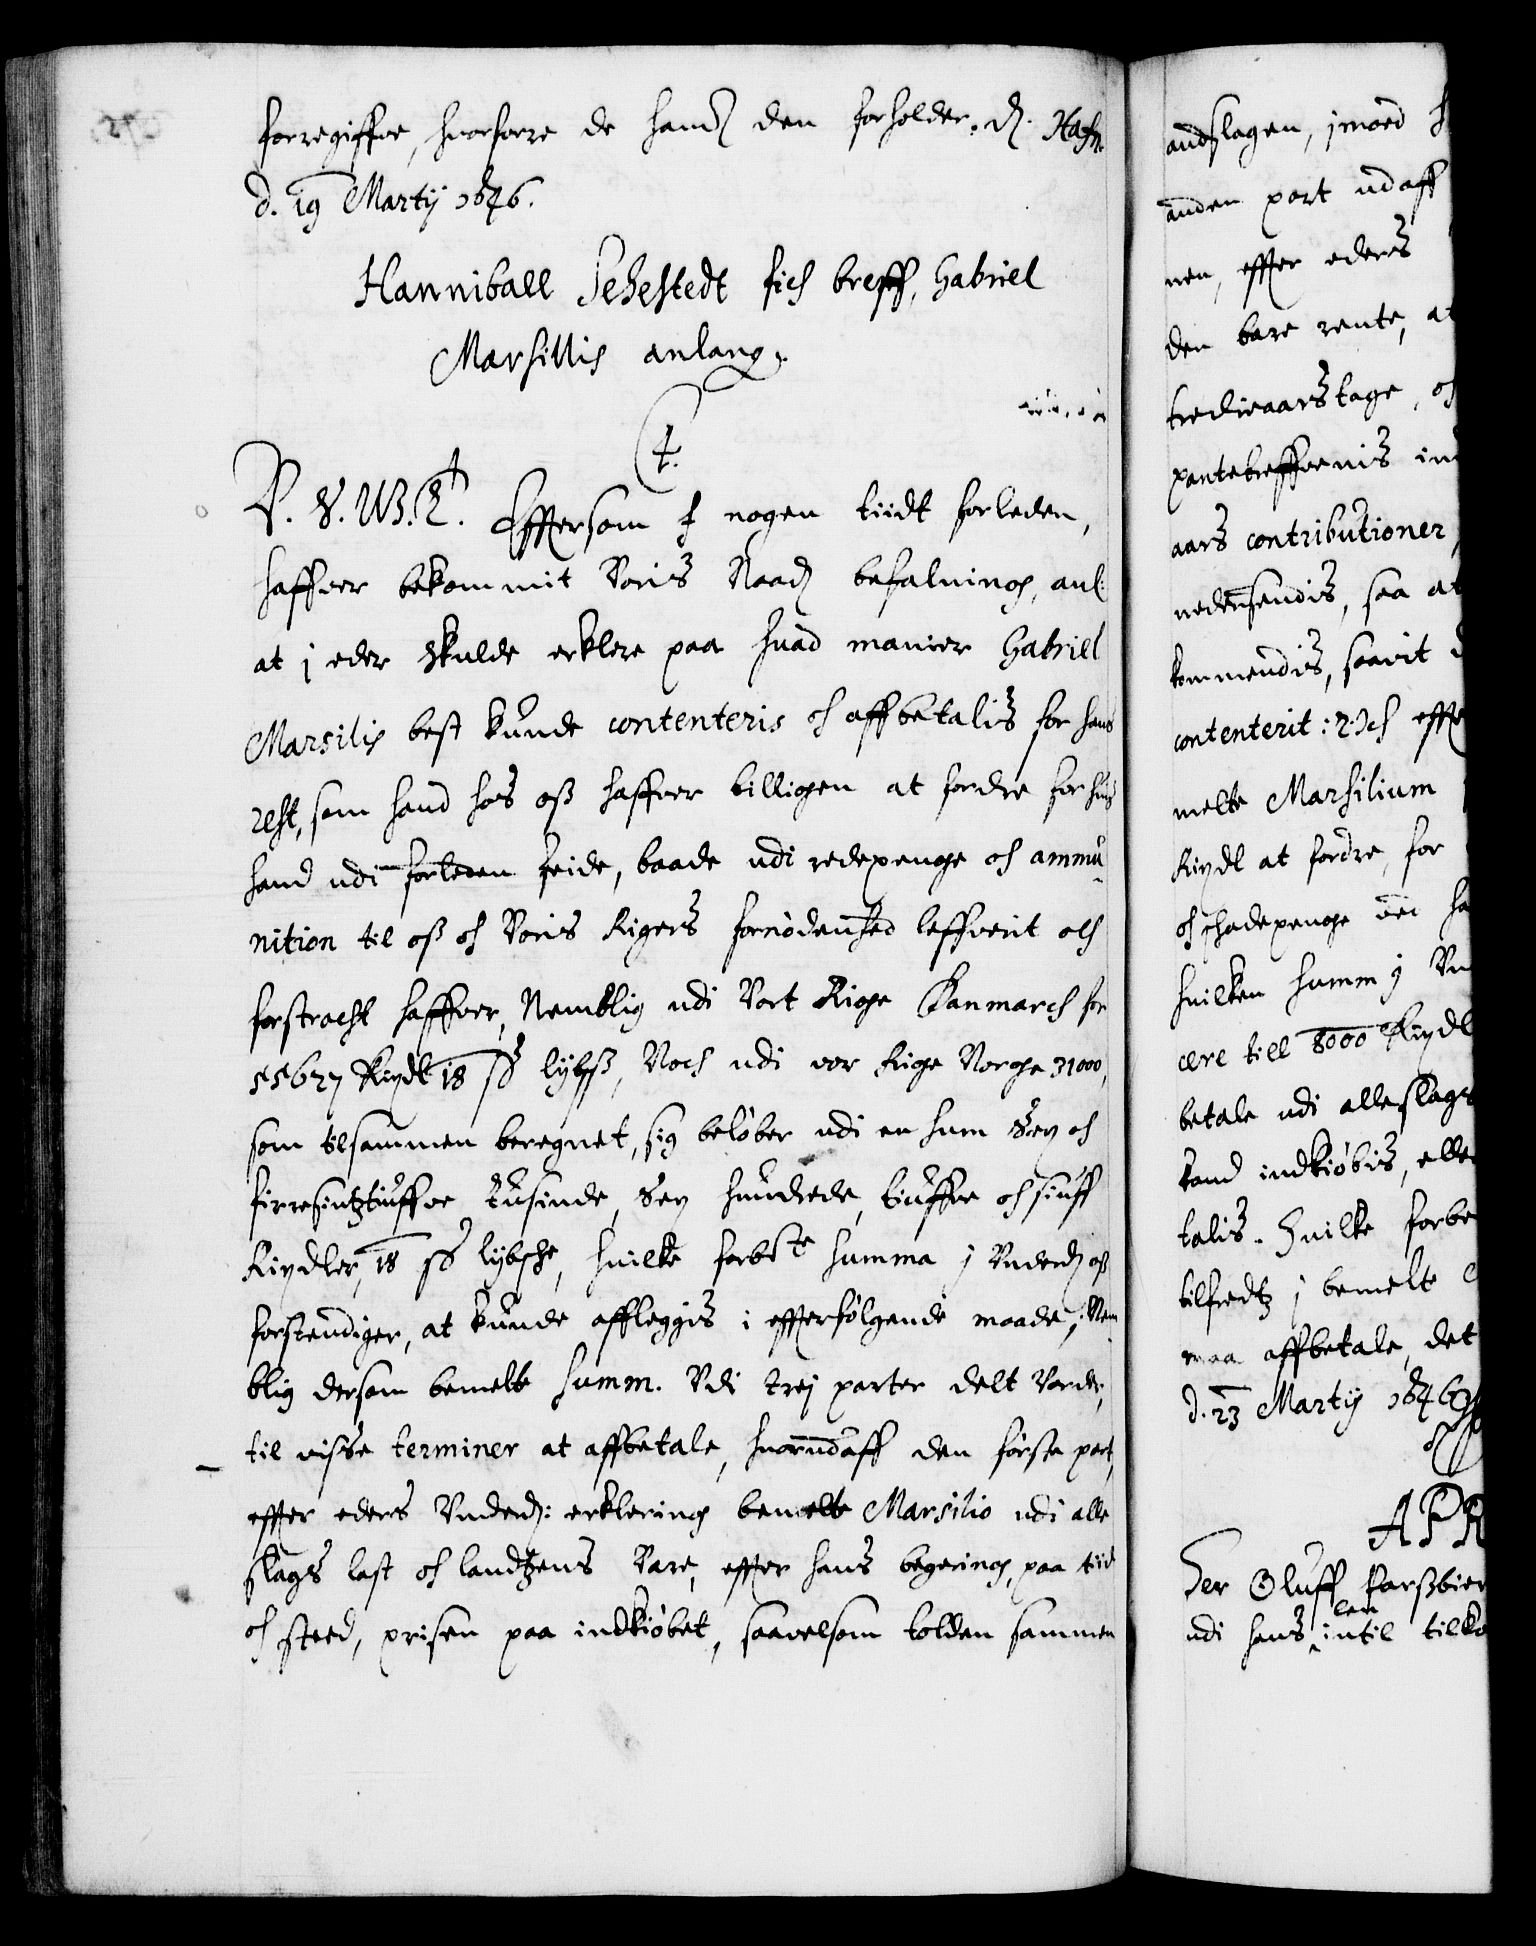 forregiffve, hvorforre de hand den forholder. Hafn.
d. 19 Martij 1646.
Hanniball Sehestedt fich breff, Gabriel
Marsillis anlang.
4.
P. V. W. G. Effersom I nogen tiidt forleden,
haffver bekommit Voris Naad befalning, anl:
at j eder skulde erklere paa huad manier Gabriel
Marsilis best kunde contenteris och affbetalis for hans
rest, som hand hos oß haffver billigen at fordre for huis
hand udi forleden feide, baade udi redepenge och ammu
nition til oß och Voris Rigers fornødenhed leffverit och
forstracht haffver, Nemblig udi Vort Rige Danmarch for
55627 Rixdl 18 sß lybsß, Noch udi vor Rige Norge 31000,
som tilsammen beregnet, sig beløber udi en sum Sex och
firresintztiuffve tusinde, Sex hundrede, tiuffve och siuff
Rixdler, 18 sß lybsche, huilke forbete summa j Underd oß
forstendiger, at kunde affleggis i effterfølgende maade, Nem
blig dersom bemelte summ. Udi trej parter delt vorder,
til visse terminer at affbetale, huorudaff den første part,
effter eders Underd: erklering bemelte Marsilio udi alle
slags last och landtzens Vare, effter hans begering, paa tiid
och sted, prisen paa indkiøbet, saavelsom tolden sammen
andslagen, jmoed
anden part udaff
nen, effter eders
den bare rente, at
tredieaarstage, och
pantebreffvenis
aars contributioner,
nedersendis, saa at
kommendis, saavit
contenterit: Och effter
melte Marsilium
Rixdl at fordre, for
och schadepenge
huilken summ j
ere till 8000 Rixdl
betale udi alleslags
land indkiøbis, eller
talis. Huilke forbe
tilfredtz j bemelte
maa affbetale, det
d. 23 Martij 1646
APR
Her Oluff
len
udi hans intil tilko